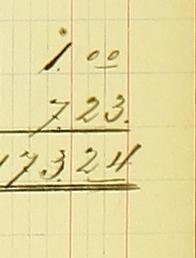 1.00
7.23.
173.24